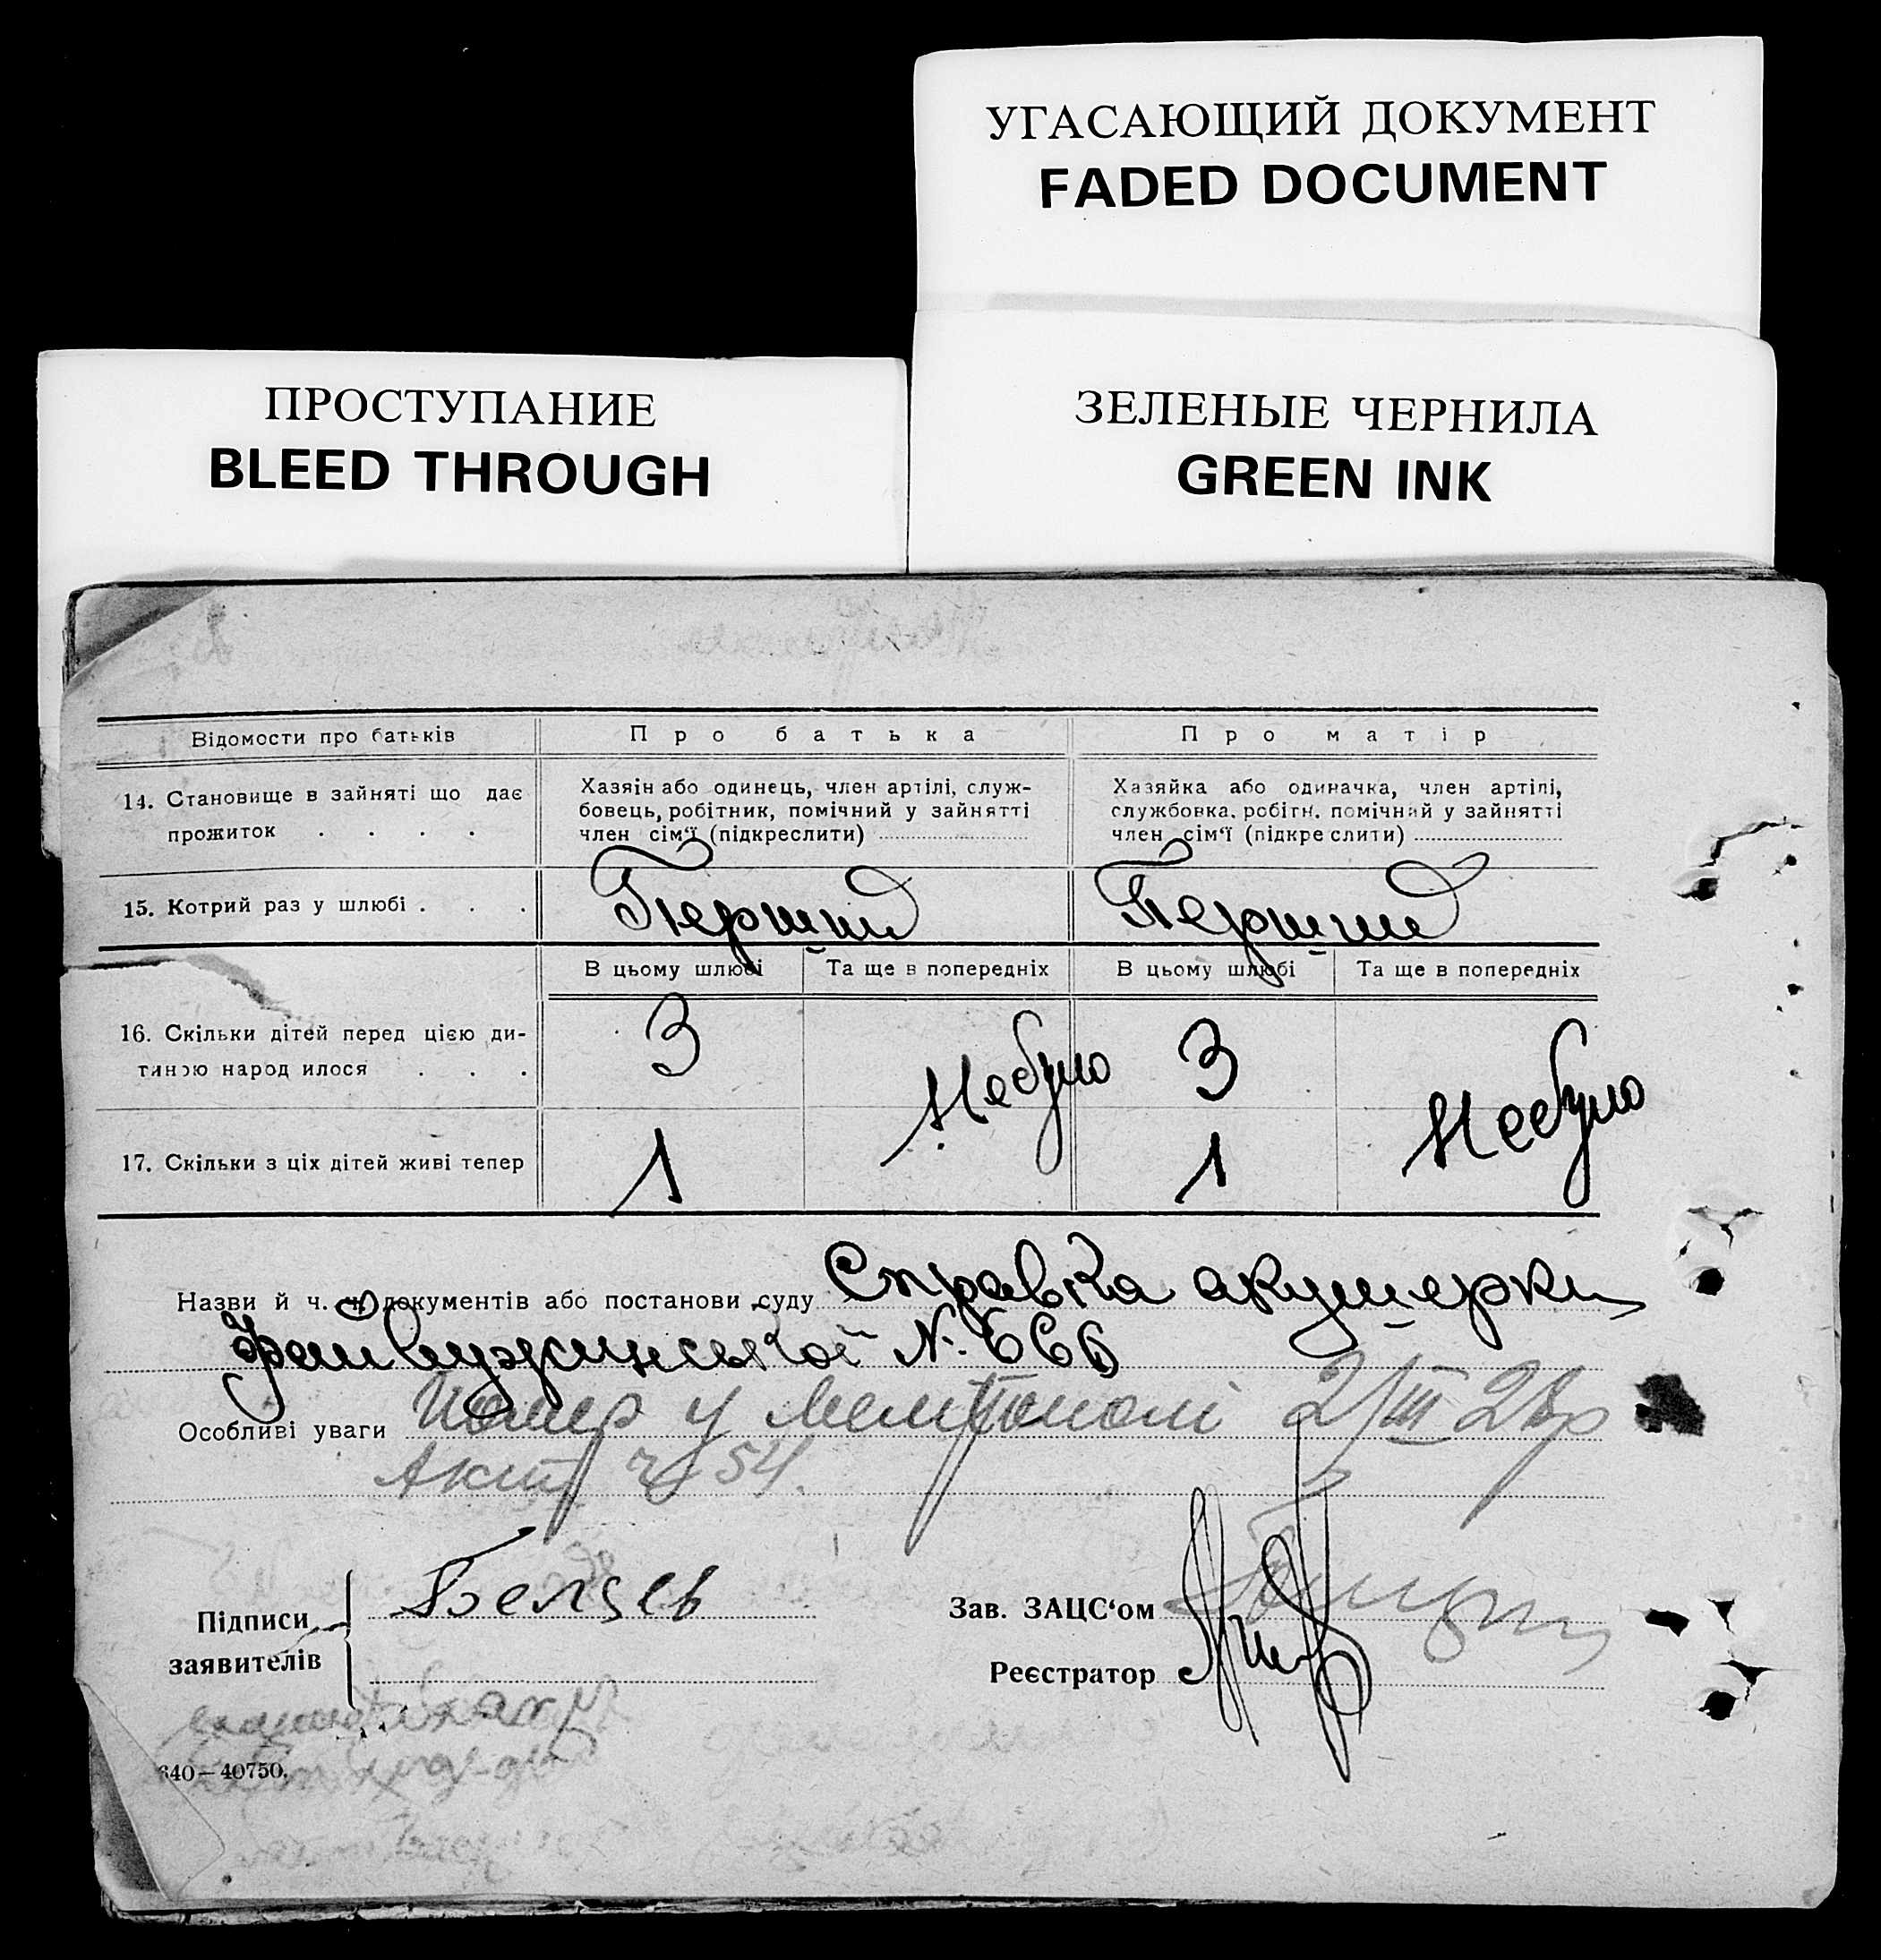 УГАСАЮЩИЙ ДОКУМЕНТ
FADED DOCUMENT
ПРОСТУПАНИЕ
BLEED THROUGH
ЗЕЛЕНЫЕ ЧЕРНИЛА
GREEN INK
Відомости про батьків
Про батька
Про матір
14. Становище в зайняті що дає
прожиток . . . .
Хазяін або одинець, член артілі, служ-
бовець, робітник, помічний у зайнятті
член сім‘ї (підкреслити)
Хазяйка або одиначка, член артілі,
службовка, робітн. помічний у зайнятті
член сім‘ї (підкреслити)
15. Котрий раз у шлюбі . . .
Перший
Перший
В цьому шлюбі
Та ще в попередніх
В цьому шлюбі
Та ще в попередніх
16. Скільки дітей перед цією ди-
тиною народилося . . .
3
Небуло
3
Небуло
17. Скільки з ціх дітей живі тепер
1
1
Назви й ч. ч. документів або постанови суду Справка акушерки
№ 666
Особливі уваги Помер у Мелітополі 2/III 28р
Акт ч 54.
Підписи
заявителів
Белцев
Зав. ЗАЦС‘ом
Реєстратор
640—40750.